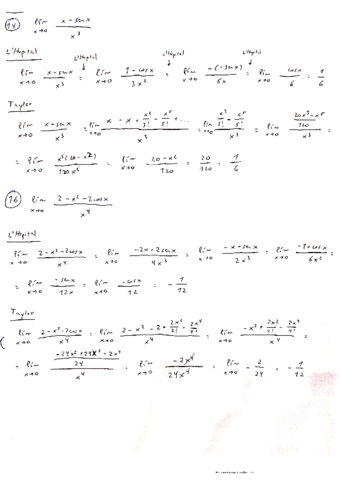 14) lim x→0 x - sen x / x³
L'Hopital
L'Hopital L'Hopital L'Hopital
lim x→0 x - sen x / x³ = lim x→0 1 - cos x / 3x² = lim x→0 -(-sen x) / 6x = lim x→0 cos x / 6 = 1/6
Taylor
lim x→0 x - sen x / x³ = lim x→0 x - x + x³/3! - x⁵/5! + ... / x³ = lim x→0 x³/3! - x⁵/5! / x³ = lim x→0 20x³ - x⁵ / 120 / x³ =
= lim x→0 x³(20 - x²) / 120 x³ = lim x→0 20 - x² / 120 = 20/120 = 1/6
16) lim x→0 2 - x² - 2cos x / x⁴
L'Hopital
lim x→0 2 - x² - 2cos x / x⁴ = lim x→0 -2x + 2sen x / 4x³ = lim x→0 -x + sen x / 2x³ = lim x→0 -1 + cos x / 6x² =
= lim x→0 -sen x / 12x = lim x→0 -cos x / 12 = - 1/12
Taylor
lim x→0 2 - x² - 2cos x / x⁴ = lim x→0 2 - x² - 2 + 2x²/2! - 2x⁴/4! / x⁴ = lim x→0 -x² + 2x²/2! - 2x⁴/4! / x⁴ =
= lim x→0 -24x² + 24x² - 2x⁴ / 24 / x⁴ = lim x→0 -2x⁴ / 24x⁴ = lim x→0 - 2/24 = - 1/12